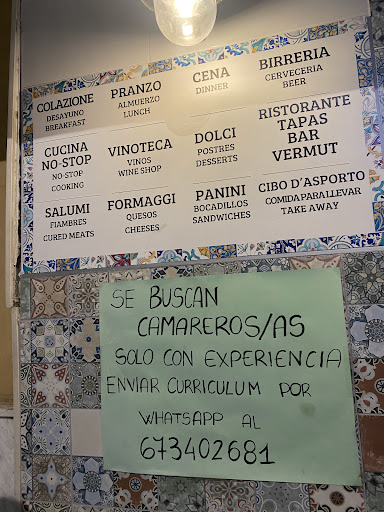 COLAZIONE
DESAYUNO
BREAKFAST
PRANZO
ALMUERZO
LUNCH
CENA
DINNER
BIRRERIA
CERVECERIA
BEER
CUCINA
NO-STOP
NO-STOP
COOKING
VINOTECA
VINOS
WINE SHOP
DOLCI
POSTRES
DESSERTS
RISTORANTE
TAPAS
BAR
VERMUT
SALUMI
FIAMBRES
CURED MEATS
FORMAGGI
QUESOS
CHEESES
PANINI
BOCADILLOS
SANDWICHES
CIBO D'ASPORTO
COMIDA PARA LLEVAR
TAKE AWAY
SE BUSCAN
CAMAREROS/AS
SOLO CON EXPERIENCIA
ENVIAR CURRICULUM POR
WHATSAPP AL
673402681